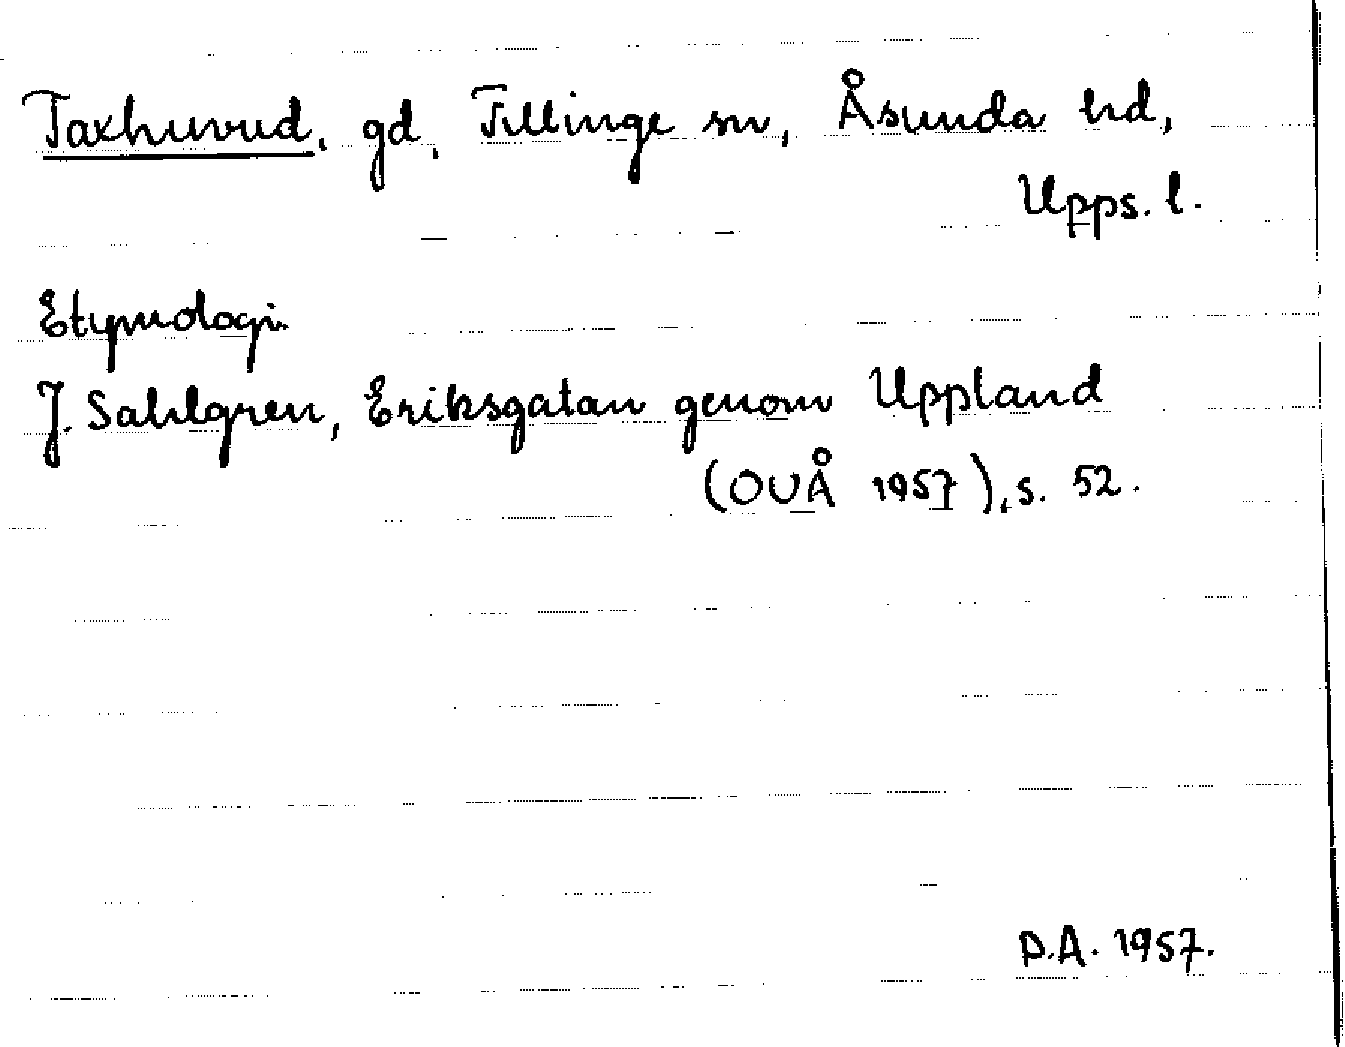 Taxhuvud, gd, Tillinge sn, Åsunda hd,
Upps. l.
Etymologi.
J. Sahlgren, Eriksgatan genom Uppland
(OUÅ 1957), s. 52.
D.A. 1957.